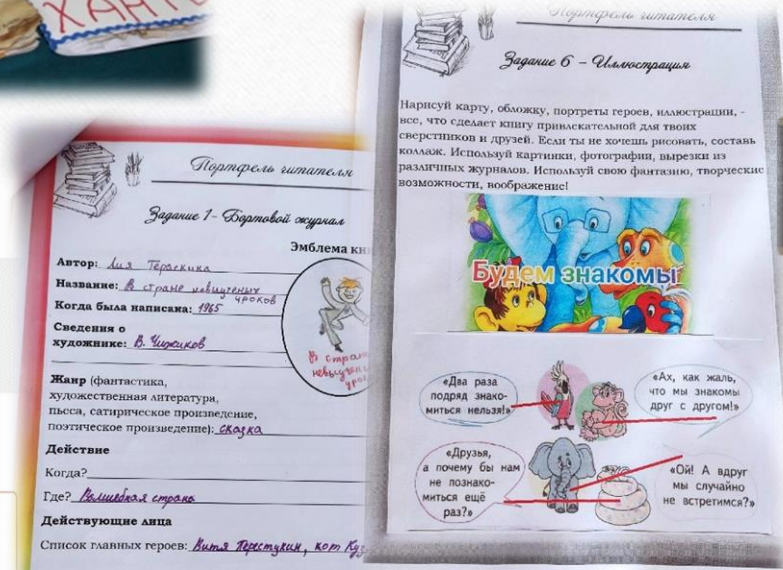 ХАНТ
Портфель читателя
Задание 1- Бортовой журнал
Эмблема кн
Автор: Лия Гераскина
Название: В стране невыученых
уроков
Когда была написана: 1965
Сведения о
художнике: В. Чижиков
В стран
невыучен
уро
Жанр (фантастика,
художественная литература,
пьеса, сатирическое произведение,
поэтическое произведение): сказка
Действие
Когда?
Где? Волшебная страна
Действующие лица
Список главных героев: Витя Перестукин, кот Куз
Портфель читателя
Задание 6 – Иллюстрация
Нарисуй карту, обложку, портреты героев, иллюстрации, -
все, что сделает книгу привлекательной для твоих
сверстников и друзей. Если ты не хочешь рисовать, составь
коллаж. Используй картинки, фотографии, вырезки из
различных журналов. Используй свою фантазию, творческие
возможности, воображение!
Будем знакомы
«Два раза
подряд знако-
миться нельзя!»
«Ах, как жаль,
что мы знакомы
друг с другом!»
«Друзья,
а почему бы нам
не познако-
миться ещё
раз?»
«Ой! А вдруг
мы случайно
не встретимся?»